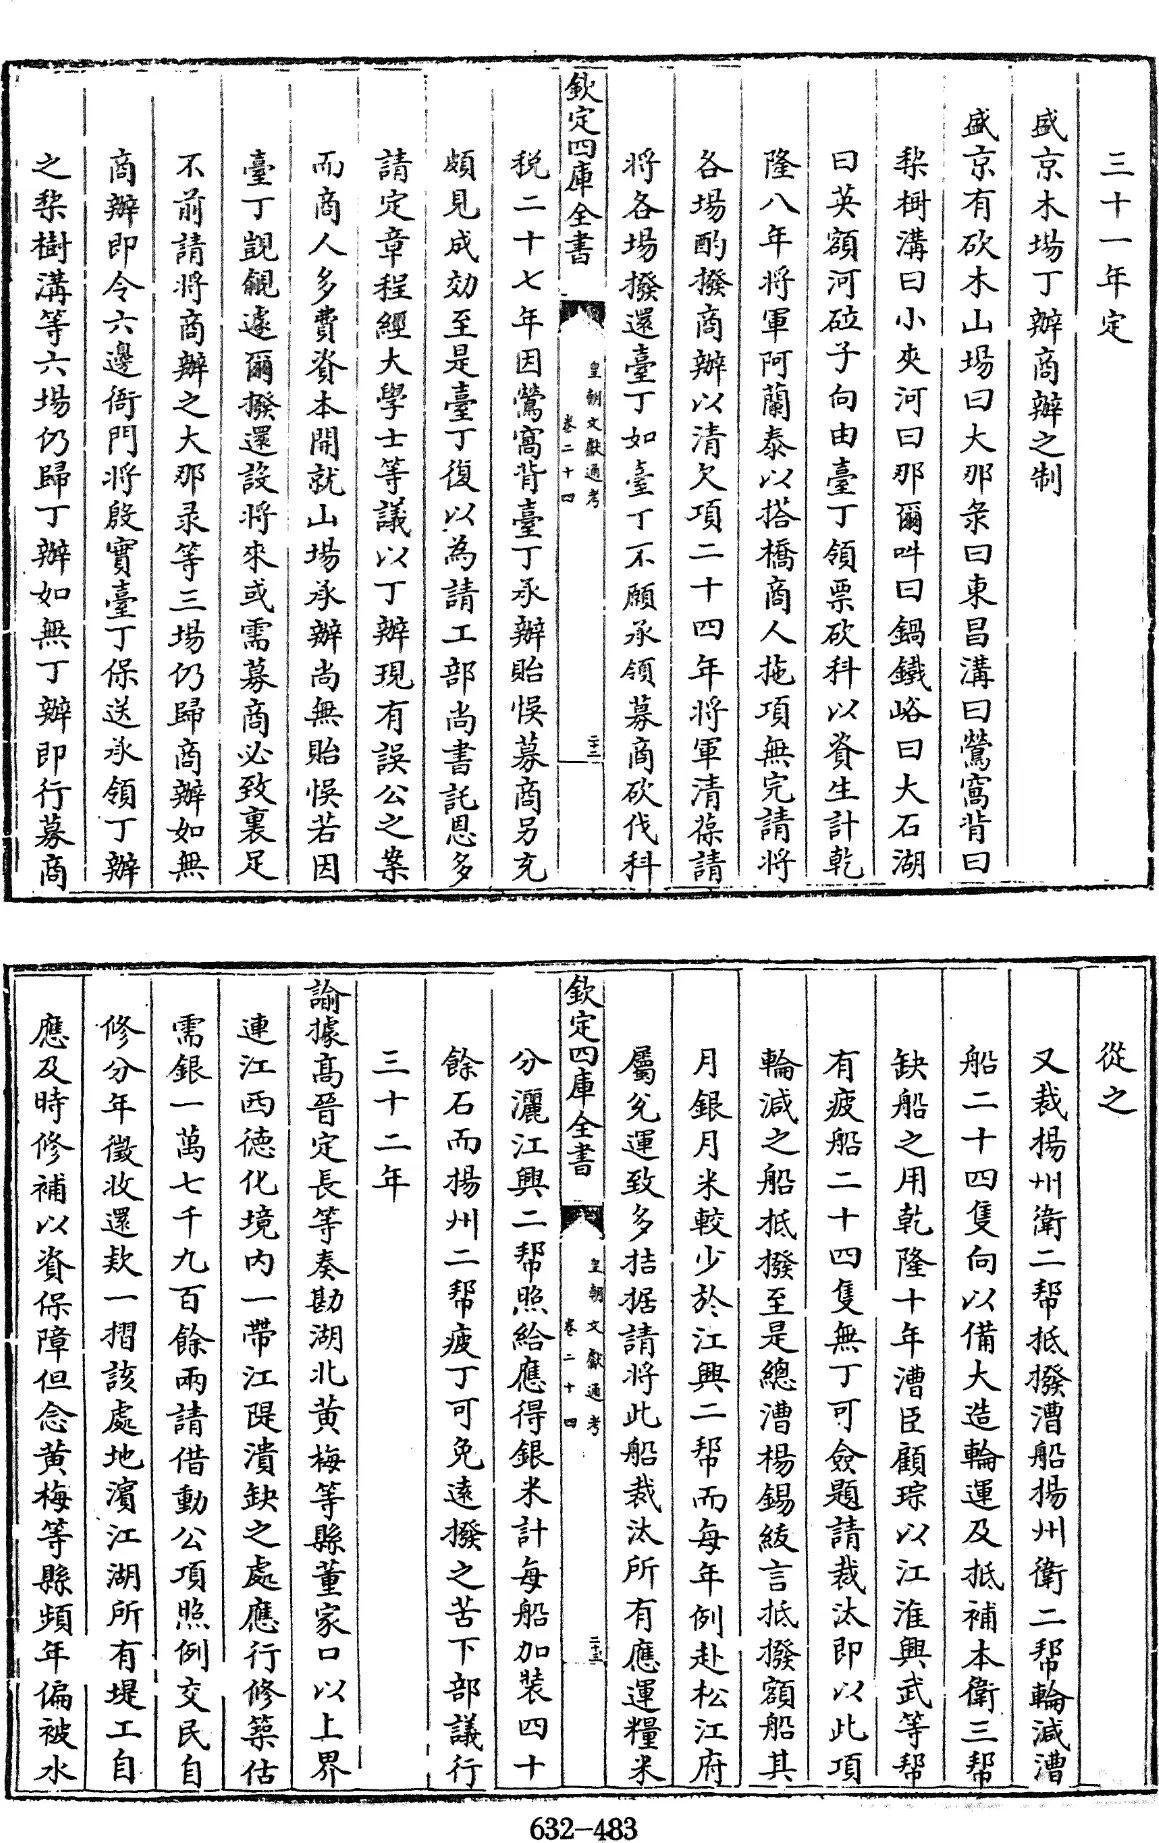 三十一年定
盛京木場丁辦商辦之制
盛京有砍木山場曰大那彔曰東昌溝曰鶯窩背曰
棃樹溝曰小夾河曰那爾呌曰鍋鐵峪曰大石湖
曰英額河砬子向由臺丁領票砍科以資生計乾
隆八年將軍阿蘭泰以搭橋商人拖項無完請將
各場酌撥商辦以清欠項二十四年將軍清葆請
將各場撥還臺丁如臺丁不願承領募商砍伐科
欽定四庫全書
皇朝文獻通考
卷二十四
税二十七年因鶯窩背臺丁承辦貽悞募商另充
頗見成効至是臺丁復以為請工部尚書託恩多
請定章程經大學士等議以丁辦現有誤公之案
而商人多費資本開就山場承辦尚無貽悞若因
臺丁覬覦遽爾撥還設將來或需募商必致裹足
不前請將商辦之大那彔等三場仍歸商辦如無
商辦即令六邊衙門將殷實臺丁保送承領丁辦
之棃樹溝等六場仍歸丁辦如無丁辦即行募商
從之
又裁揚州衛二帮抵撥漕船揚州衛二帮輪減漕
船二十四隻向以備大造輪運及抵補本衛三帮
缺船之用乾隆十年漕臣顧琮以江淮興武等帮
有疲船二十四隻無丁可僉題請裁汰即以此項
輪減之船抵撥至是總漕楊錫紱言抵撥額船其
月銀月米較少於江興二帮而每年例赴松江府
屬兑運致多拮据請將此船裁汰所有應運糧米
欽定四庫全書
皇朝文獻通考
卷二十四
分灑江興二帮照給應得銀米計每船加裝四十
餘石而揚州二帮疲丁可免遠撥之苦下部議行
三十二年
諭據高晉定長等奏勘湖北黄梅等縣董家口以上界
連江西德化境内一帶江隄潰缺之處應行修築估
需銀一萬七千九百餘兩請借動公項照例交民自
修分年徵收還款一摺該處地濱江湖所有堤工自
應及時修補以資保障但念黄梅等縣頻年偏被水
632-483